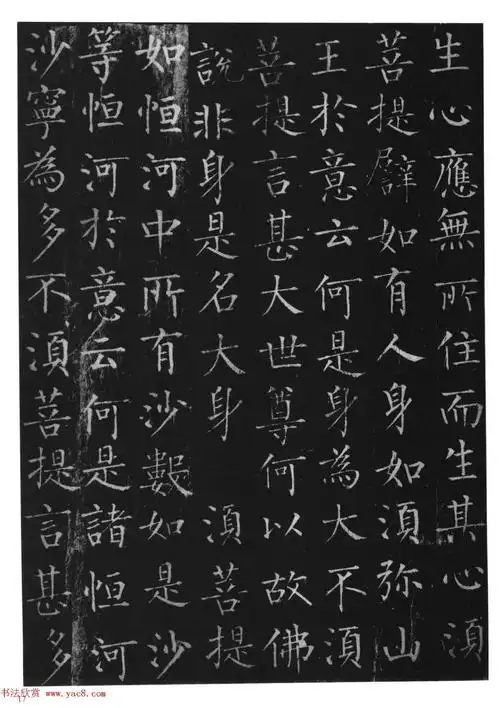 生心應無所住而生其心湏
菩提譬如有人身如湏弥山
王於意云何是身為大不湏
菩提言甚大世尊何以故佛
說非身是名大身 湏菩提
如恒河中所有沙數如是沙
等恒河於意云何是諸恒河
沙寧為多不湏菩提言甚多
书法欣赏 www.yac8.com
17